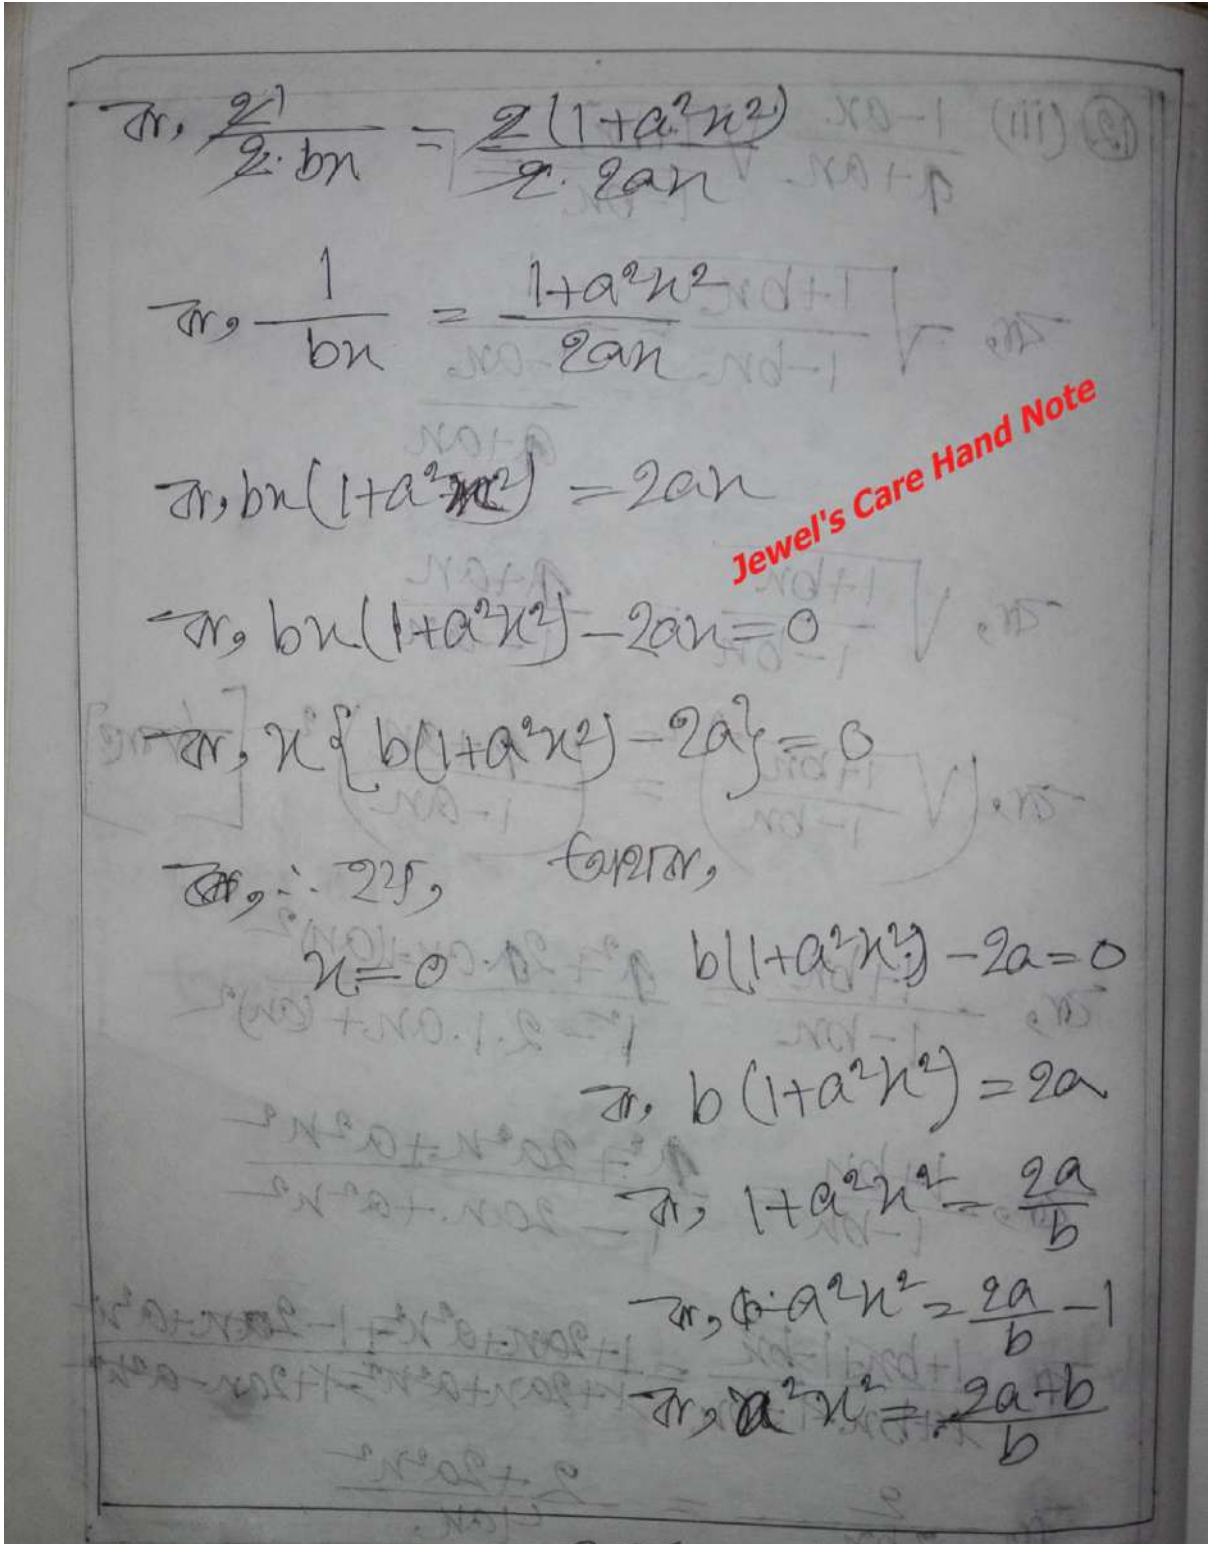 বা, 2/2·bx = 2(1+a²x²)/2·2ax
বা, 1/bx = 1+a²x²/2ax
বা, bx(1+a²x²) = 2ax
Jewel's Care Hand Note
বা, bx(1+a²x²) - 2ax = 0
বা, x{b(1+a²x²) - 2a} = 0
∴ হয়, অথবা,
x = 0 b(1+a²x²) - 2a = 0
বা, b(1+a²x²) = 2a
বা, 1+a²x² = 2a/b
বা, a²x² = 2a/b - 1
বা, a²x² = 2a+b/b